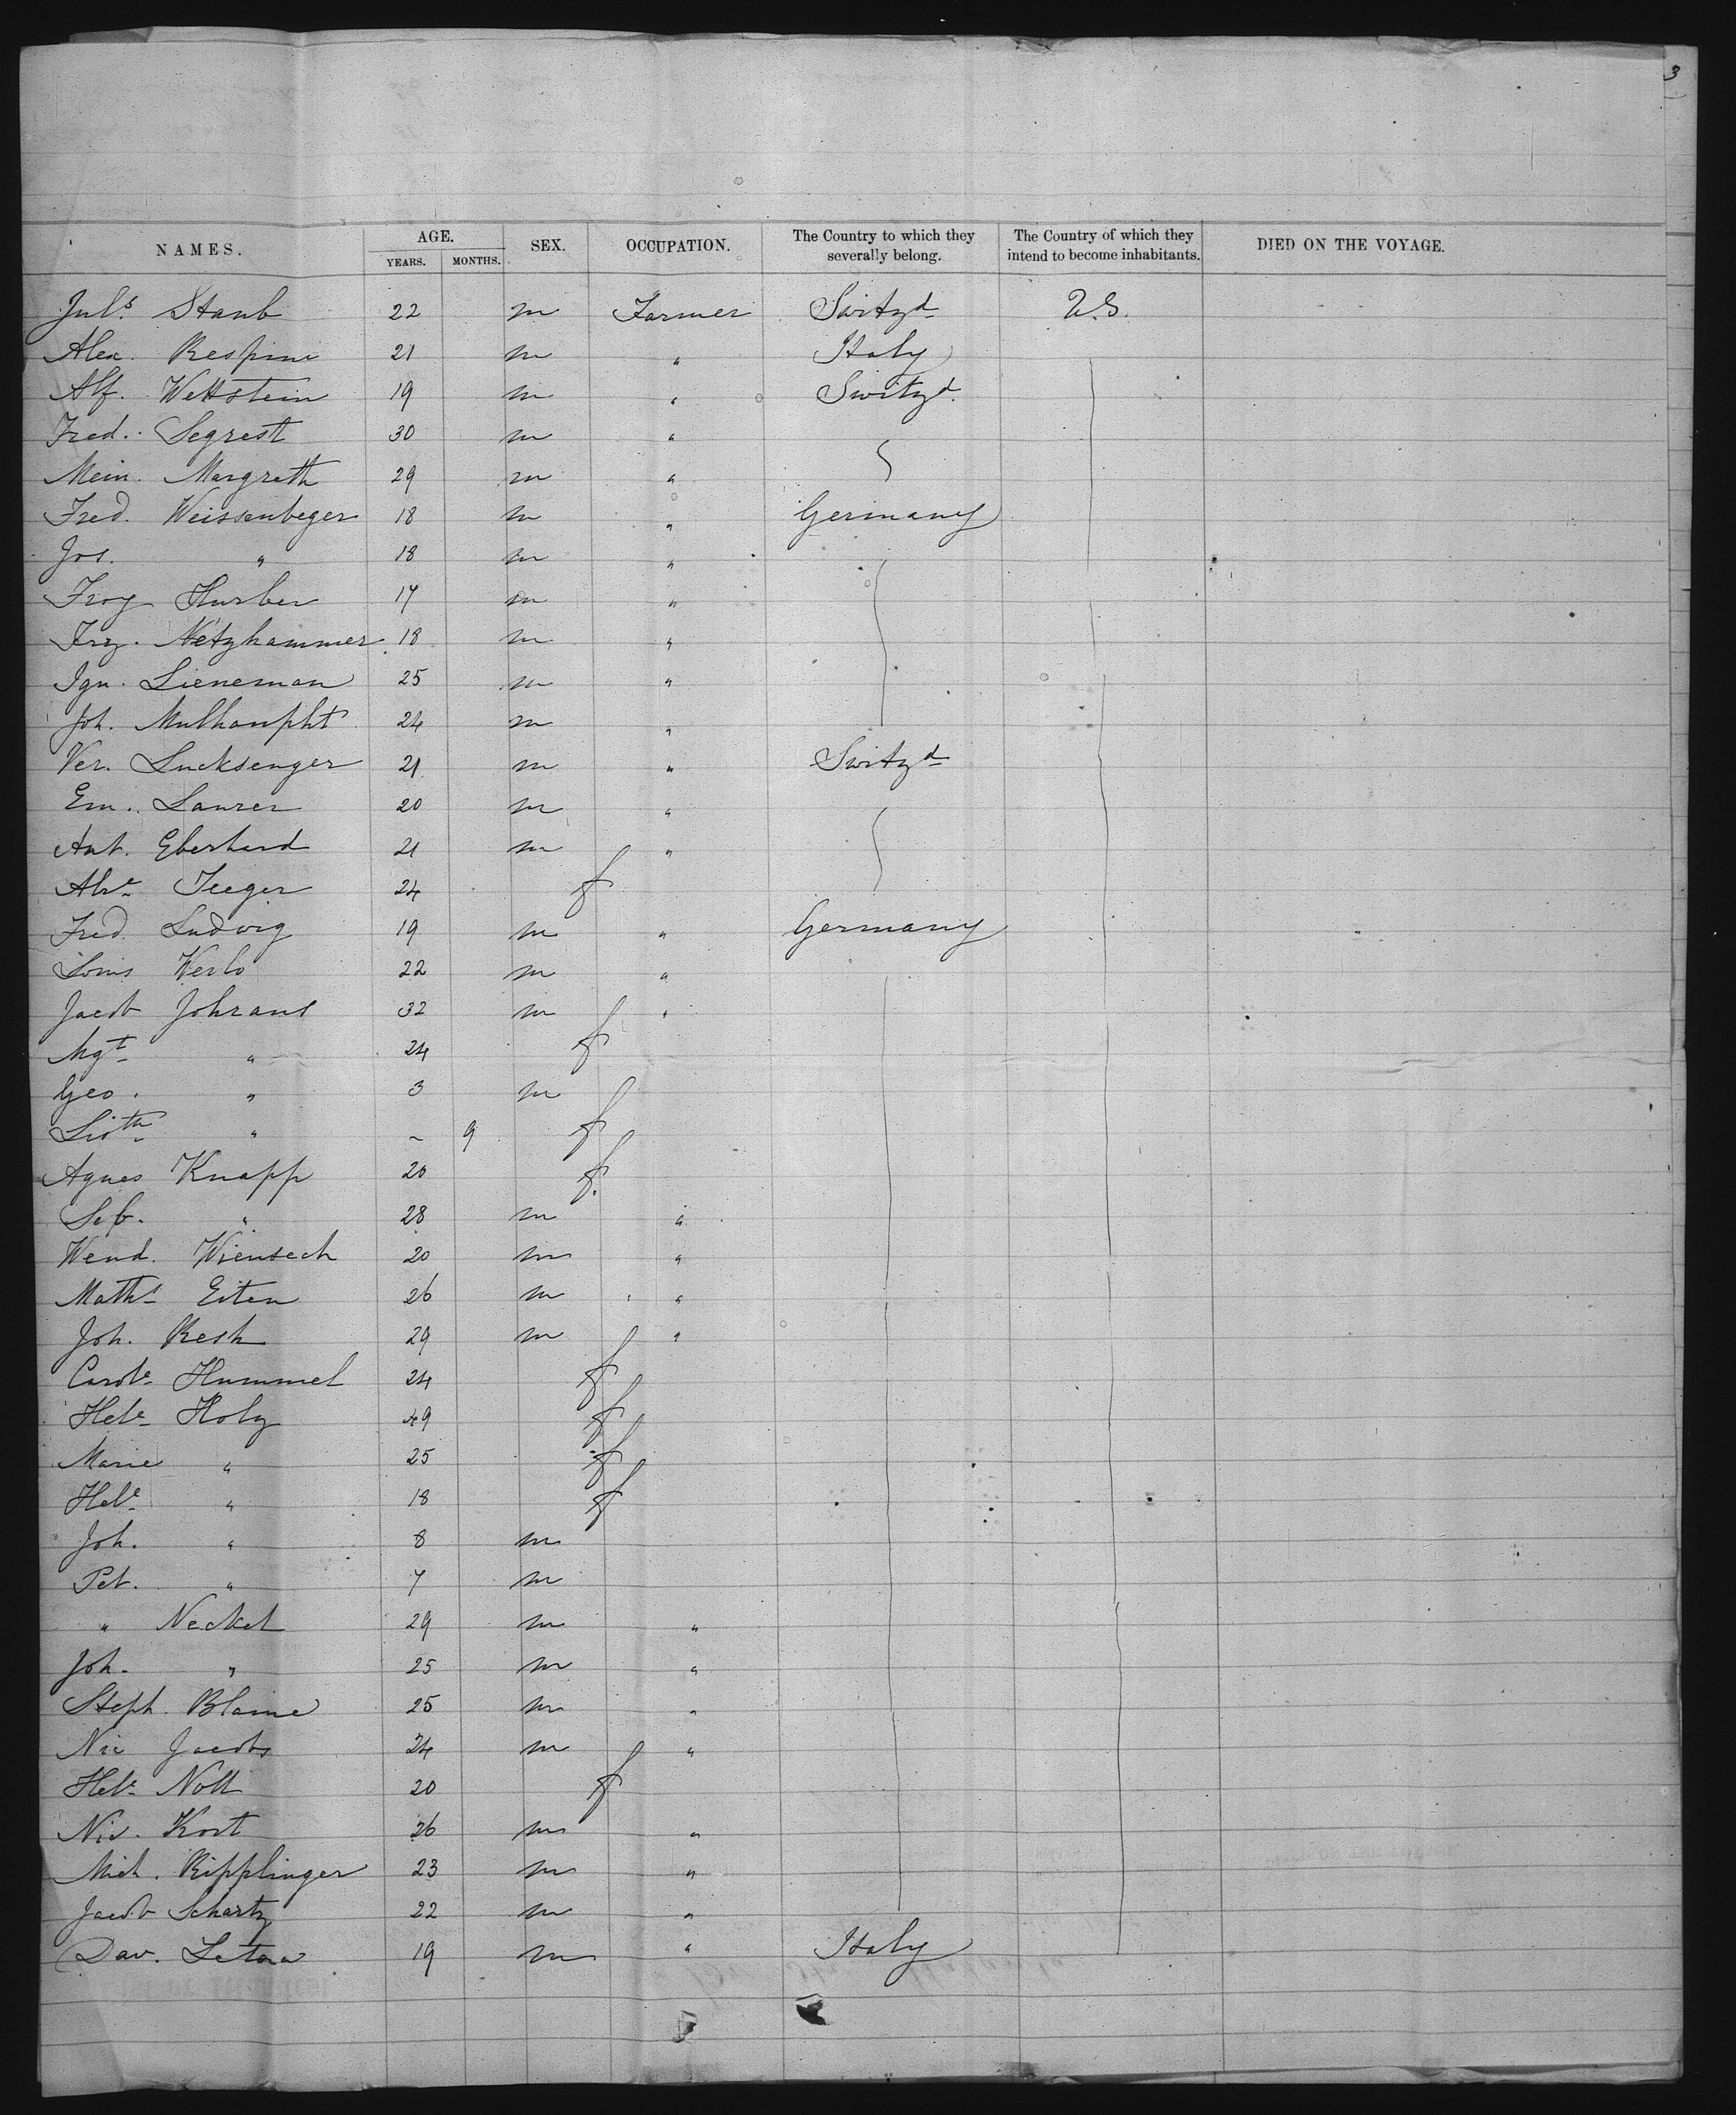 3
NAMES. AGE. YEARS. MONTHS. SEX. OCCUPATION. The Country to which they severally belong. The Country of which they intend to become inhabitants. DIED ON THE VOYAGE.
Juls. Staub 22 m Farmer Switzd U.S.
Alex. Respini 21 m " Italy
Alf. Wettstein 19 m " Switzd.
Fred. Segrest 30 m "
Mein. Margreth 29 m "
Fred. Weissenbeger 18 m " Germany
Jos. " 18 m "
17 m "
Frz. Netzhammer 18 m "
Ign. Lieneman 25 m "
Joh. Mulhaupht 24 m "
Ver. Lucksenger 21 m " Switzd
Em. Laurer 20 m "
Ant. Eberhard 21 m "
Jeeger 24 f
Fred Ludwig 19 m " Germany
Louis Werlo 22 m "
Jacob Johrans 32 m "
Mgt " 24 f
Geo. " 3 m
" ~ 9 f
Agnes Knapp 20 f.
Seb. " 28 m "
Wend. Wiensech 20 m "
Maths Eiten 26 m "
Joh. Resh 29 m "
Carole Hummel 24 f
Hele Holz 49 f
Marie " 25 f
Hele " 18 f
Joh. " 8 m
Pet. " 7 m
" Neckel 29 m "
Joh. " 25 m "
Steph. Blaine 25 m "
Nic Jacobs 24 m "
Hele Noll 20 f
Nic. Kort 26 m "
Mich. Ripplinger 23 m "
Jacob Schartz 22 m "
Dav. 19 m " Italy